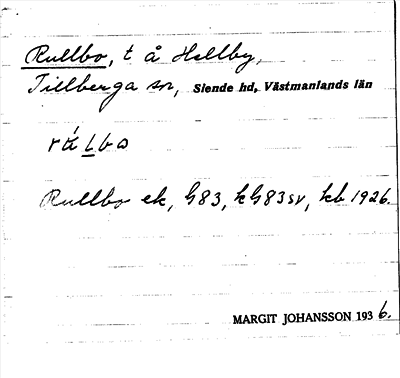 Rullbo, t å Hallby,
Tillberga sn, Siende hd, Västmanlands län
Rullbo ek, G83, kG83sv, kb 1926.
MARGIT JOHANSSON 1936.